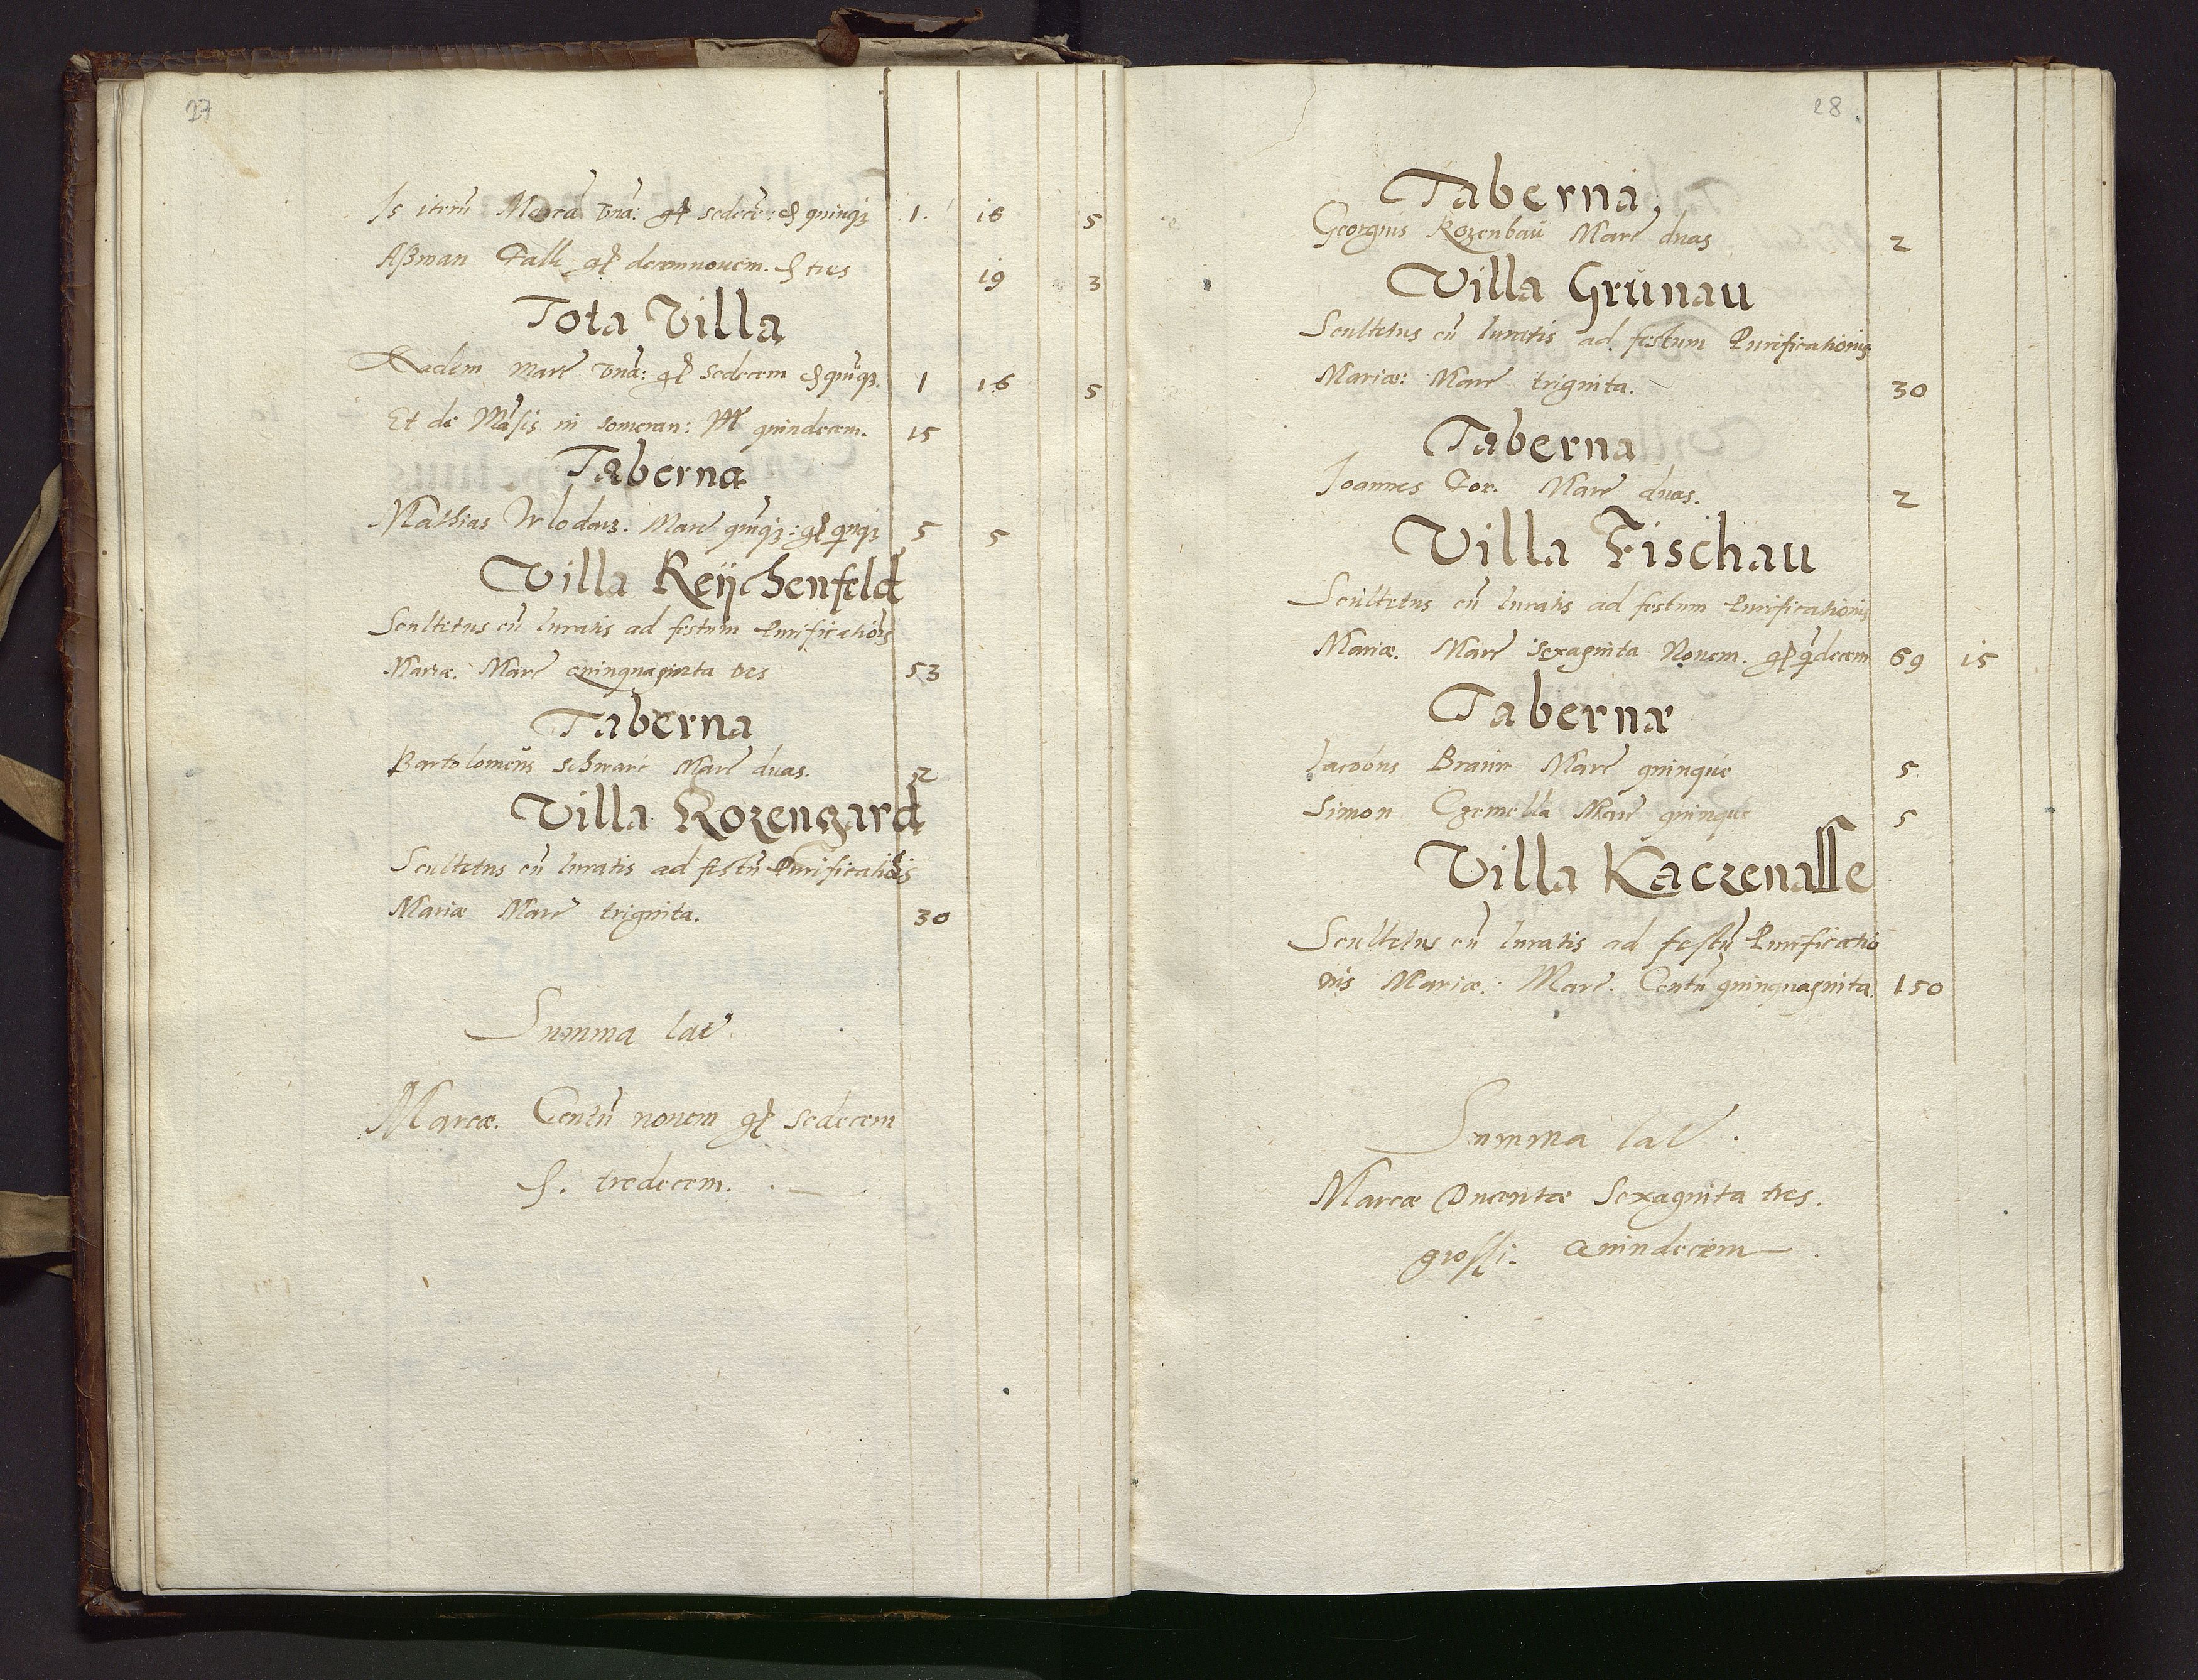 27
Is iterũ Marcã vnã: gł sedecẽ: ₰ quinqꝫ 1. 16 5
Aßman Falk gł decemnouem. ₰ tres 19 3
Tota Villa
Eadem Marc vnã: gł sedecem ₰ quĩqꝫ. 1 16 5
Et de Mãsis in someran: M quindecem. 15
Taberna
Mathias Wlodarz. Marc quĩqꝫ: gł quĩqꝫ 5 5
Villa Reÿchenfeld
Scultetus cũ Iuratis ad festum Purificatiõis
Mariæ. Marc quinquaginta tres 53
Taberna
Bartolomeus Schwarc Marc duas. 2
Villa Rozengard
Scultetus cũ Iuratis ad festũ Purificatiõis
Mariæ Marc triginta. 30
Summa lat
Marcæ. Centũ nouem gł sedecem
₰. tredecem.
28
Taberna
Georgius Rozenbaũ Marc duas 2
Villa Grŭnau
Scultetus cũ Iuratis ad festum Purificationis
Mariæ: Marc triginta. 30
Taberna
Joannes Fox. Marc duas. 2
Villa Fischau
Scultetus cũ Iuratis ad festum Purificationis
Mariæ. Marc sexaginta Nouem. gł qĩdecem 69 15
Tabernæ
Jacobus Braun Marc quinque 5
Simon Czemella Marc quinque 5
Villa Kaczenasse
Scultetus cũ Iuratis ad festũ Purificatio
nis Mariæ: Marc. Centũ quinquaginta 150
Summa lat.
Marcæ Ducentæ Sexaginta tres.
grossi. Quindecem.